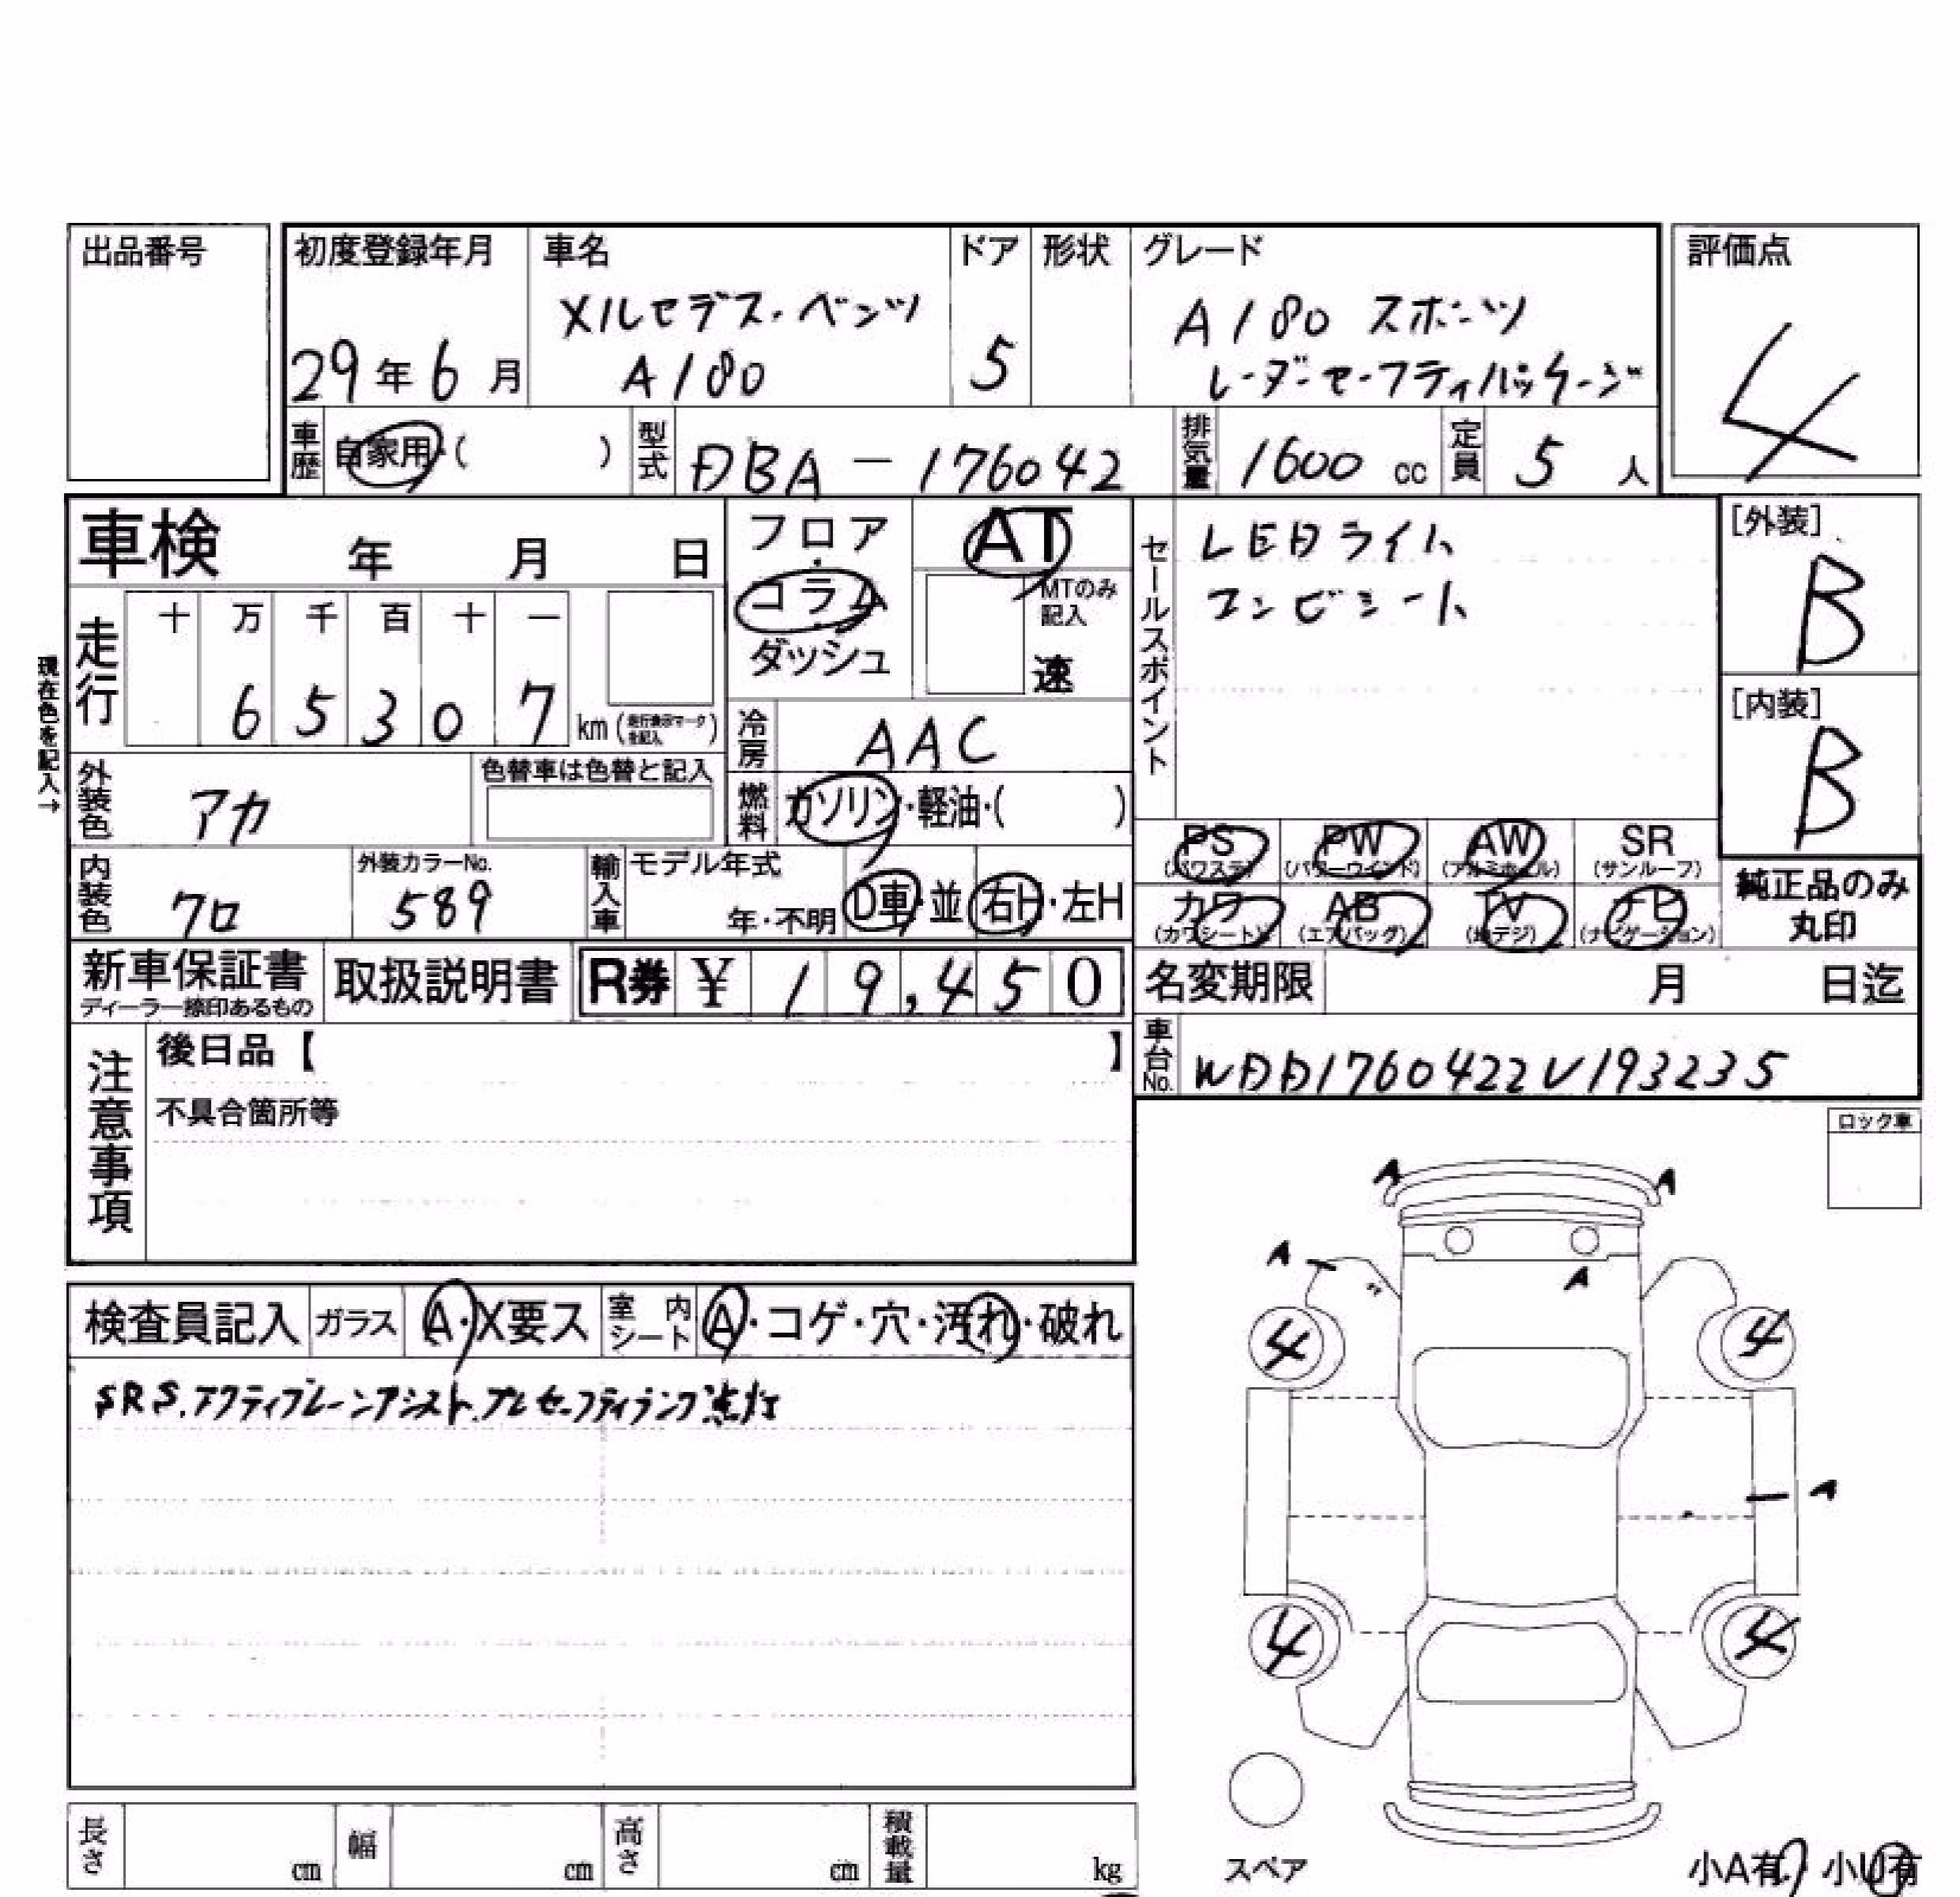 出品番号
初度登録年月 車名 ドア 形状 グレード 評価点
メルセデス・ベンツ A180 スポーツ
29年6月 A180 5 レーダーセーフティパッケージ
4
車歴 自家用・( ) 型式 DBA-176042 排気量 1600 cc 定員 5 人
車検 年 月 日
フロア・コラム・ダッシュ
AT
MTのみ記入
速
セールスポイント
LEDライト
コンビシート
[外装]
B
[内装]
B
現在色を記入→
走行 十 万 千 百 十 一
6 5 3 0 7 km (走行表示マークを記入)
冷房 AAC
外装色 アカ 色替車は色替と記入
燃料 ガソリン・軽油・( )
PS PW AW SR
(パワステ) (パワーウインド) (アルミホイル) (サンルーフ)
カワ AB TV ナビ
(カワシート) (エアバッグ) (地デジ) (ナビゲーション)
純正品のみ
丸印
内装色 クロ 外装カラーNo. 589 輸入車 モデル年式 年・不明 D車・並 右H・左H
新車保証書 取扱説明書 R券 ¥ 19,450
ディーラー捺印あるもの
名変期限 月 日迄
車台No. WDD1760422V193235
注意事項
後日品【 】
不具合箇所等
ロック車
検査員記入 ガラス A・X要ス 室内シート A・コゲ・穴・汚れ・破れ
SRS.アクティブレーンアシスト.プレセーフティランプ点灯
A A
A
A
4 4
A
4 4
スペア
小A有・小U有
長さ cm 幅 cm 高さ cm 積載量 kg